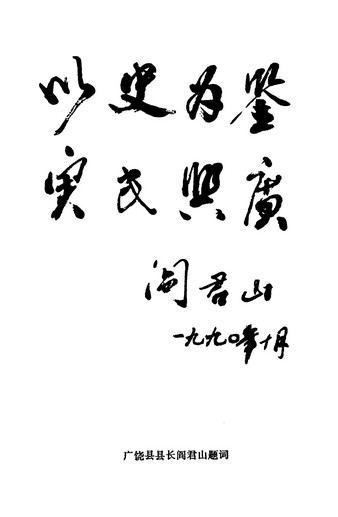 以史为鉴
実民興廣
阎君山
一九九〇年十月
广饶县县长阎君山题词